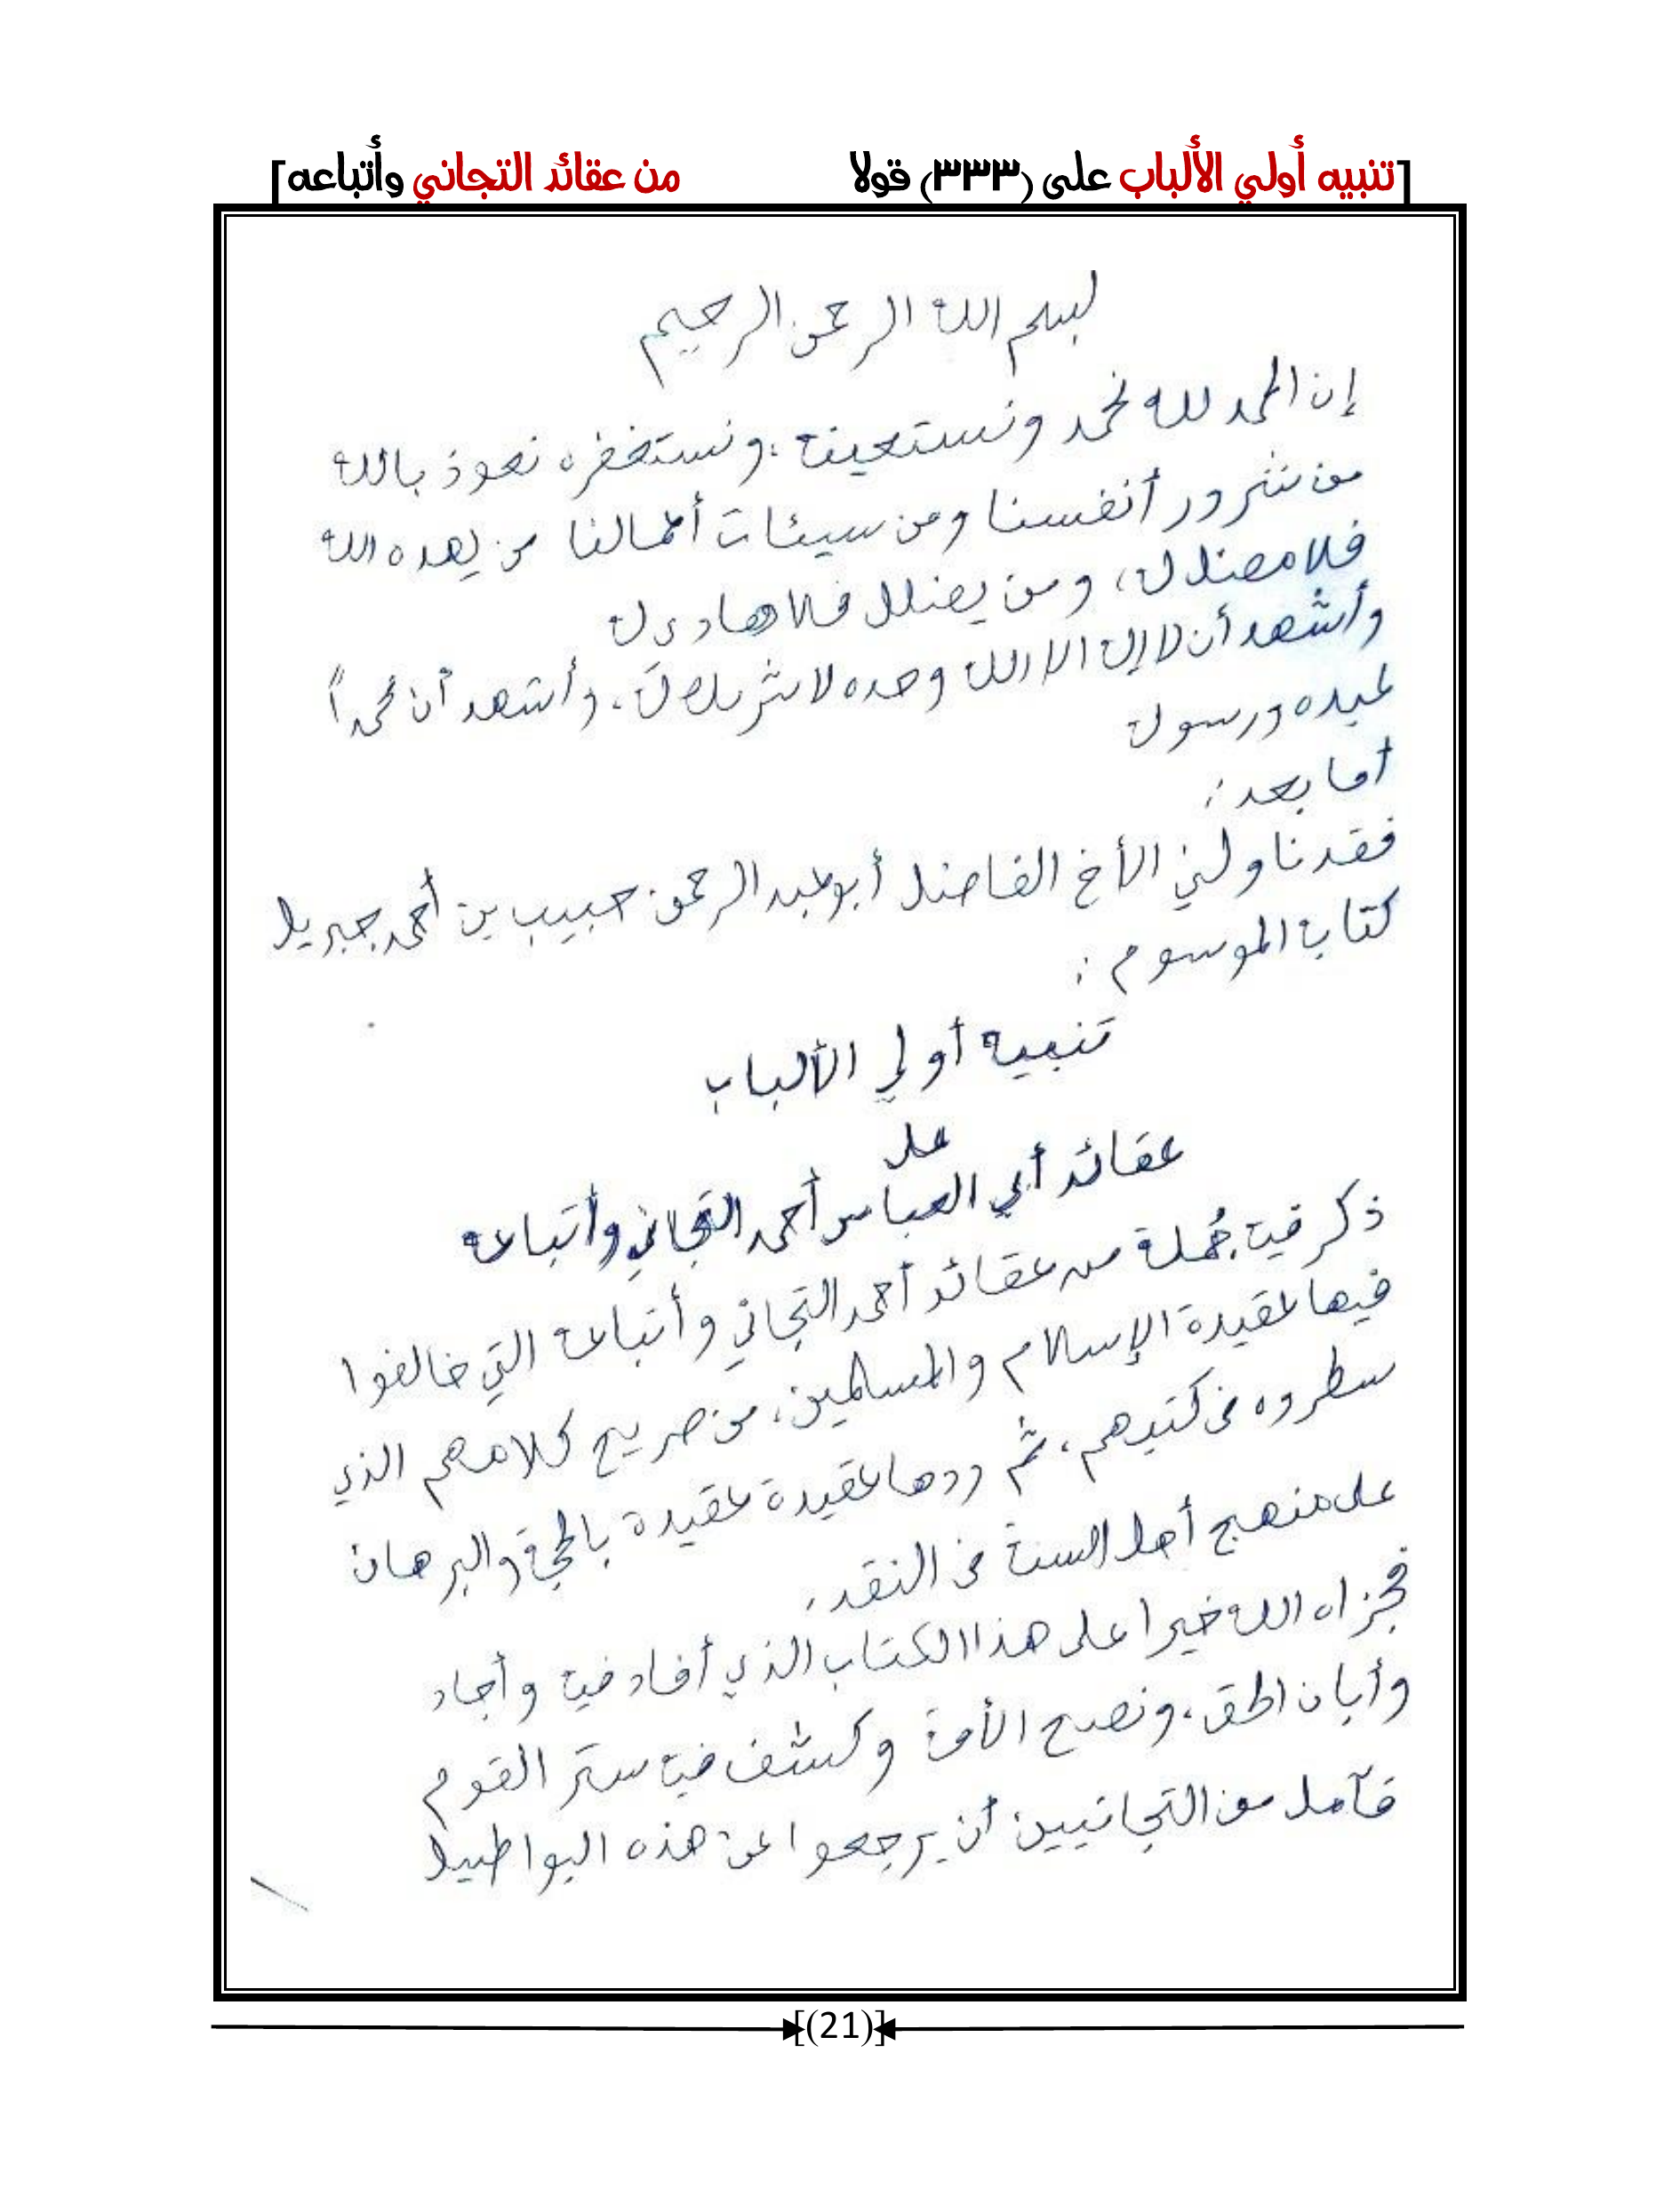 [تنبيه أولي الألباب على (٣٣٣) قولا من عقائد التجاني وأتباعه]
بسم الله الرحمن الرحيم
إن الحمد لله نحمد ونستعينه، ونستغفره نعوذ بالله
من شرور أنفسنا ومن سيئات أعمالنا من يهده الله
فلا مضل له، ومن يضلل فلا هادي له
وأشهد أن لا إله إلا الله وحده لا شريك له، وأشهد أن محمداً
عبده ورسوله
أما بعد:
فقد ناولني الأخ الفاضل أبو عبد الرحمن حبيب بن أحمد جبريل
كتابه الموسوم:
تنبيه أولي الألباب
على
عقائد أبي العباس أحمد التجاني وأتباعه
ذكر فيه جُملة من عقائد أحمد التجاني وأتباعه التي خالفوا
فيها عقيدة الإسلام والمسلمين، من صريح كلامهم الذي
سطروه في كتبهم، ثم ردها عقيدة عقيدة بالحجة والبرهان
على منهج أهل السنة في النقد.
فجزاه الله خيرا على هذا الكتاب الذي أفاد فيه وأجاد
وأبان الحق، ونصح الأمة وكشف فيه ستر القوم
فآمل من التجانيين أن يرجعوا عن هذه البواطيل
[(21)]